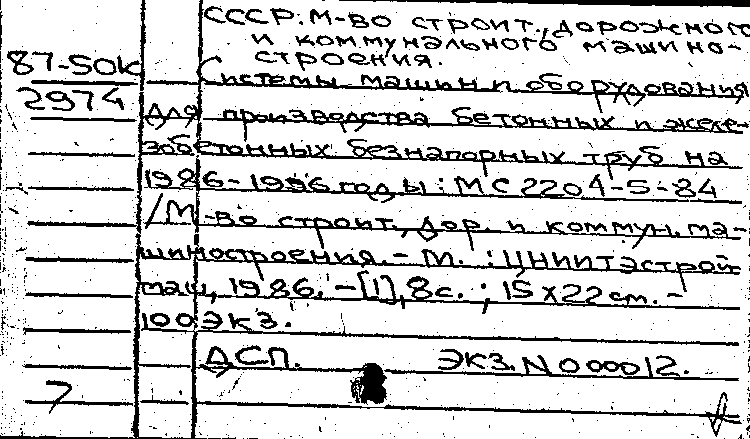 СССР. М-во строит., дорожного
и коммунального машино-
строения.
87-50к
2974
Системы машин и оборудования
для производства бетонных и желе-
зобетонных безнапорных труб на
1986-1996 годы: МС 2204-5-84
/М-во строит., дор. и коммун. ма-
шиностроения. - М. : ЦНИИТЭстрой-
маш, 1986. - [1], 8с. ; 15х22 см. -
100 экз.
ДСП. Экз. N 000012.
7